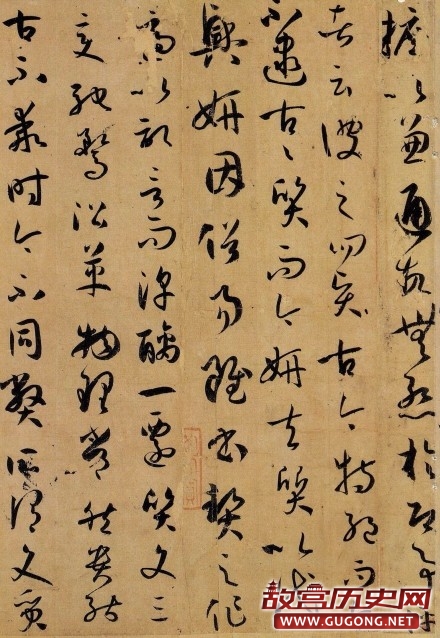 擅以兼通故無慚於即事評
者云彼之四賢古今特絕而今
不逮古々質而今妍夫質以代
興妍因俗易雖書契之作
適以記言而淳醨一遷質文三
變馳騖沿革物理常然貴能
古不乖時今不同弊所謂文質
故宫历史网
WWW.GUGONG.NET